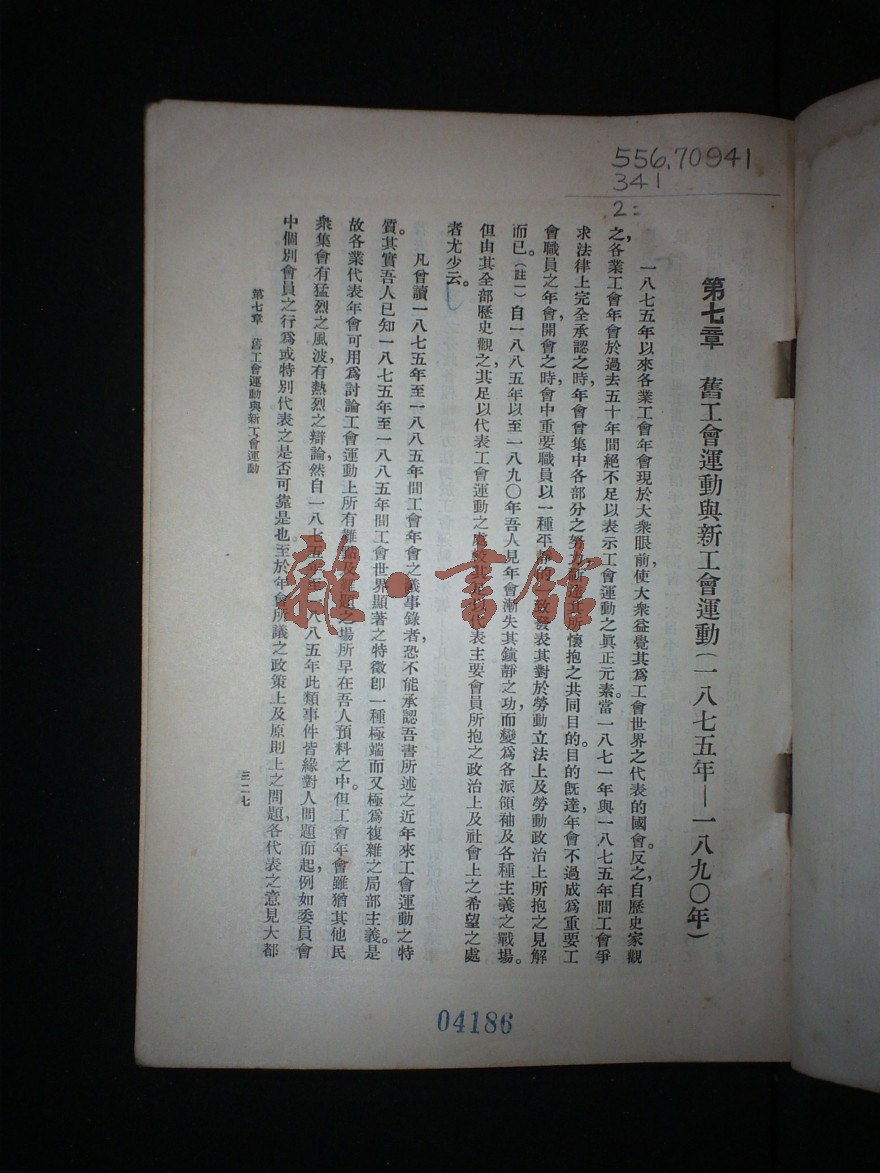 556.70941
341
2:
第七章　舊工會運動與新工會運動(一八七五年—一八九〇年)
一八七五年以來各業工會年會現於大衆眼前使大衆益覺其爲工會世界之代表的國會。反之，自歷史家觀
之，各業工會年會於過去五十年間絕不足以表示工會運動之眞正元素。當一八七一年與一八七五年間工會爭
求法律上完全承認之時，年會曾集中各部分之努力所懷抱之共同目的。目的旣達，年會不過成爲重要工
會職員之年會，開會之時會中重要職員以一種平靜的發表其對於勞動立法上及勞動政治上所抱之見解
而已。(註一)自一八八五年以至一八九〇年吾人見年會漸失其鎭靜之功，而變爲各派領袖及各種主義之戰場。
但由其全部歷史觀之，其足以代表工會運動之處較其足以代表主要會員所抱之政治上及社會上之希望之處
者尤少云。
凡曾讀一八七五年至一八八五年間工會年會之議事錄者，恐不能承認吾書所述之近年來工會運動之特
質。其實吾人已知一八七五年至一八八五年間工會世界顯著之特徵卽一種極端而又極爲複雜之局部主義。是
故各業代表年會可用爲討論工會運動上所有難點及難題之場所，早在吾人預料之中。但工會年會雖猶其他民
衆集會有猛烈之風波，有熱烈之辯論，然自一八七五年至一八八五年此類事件皆緣對人問題而起，例如委員會
中個別會員之行爲或特別代表之是否可靠是也。至於年會所議之政策上及原則上之問題，各代表之意見大都
第七章　舊工會運動與新工會運動
三二七
04186
雜·書館